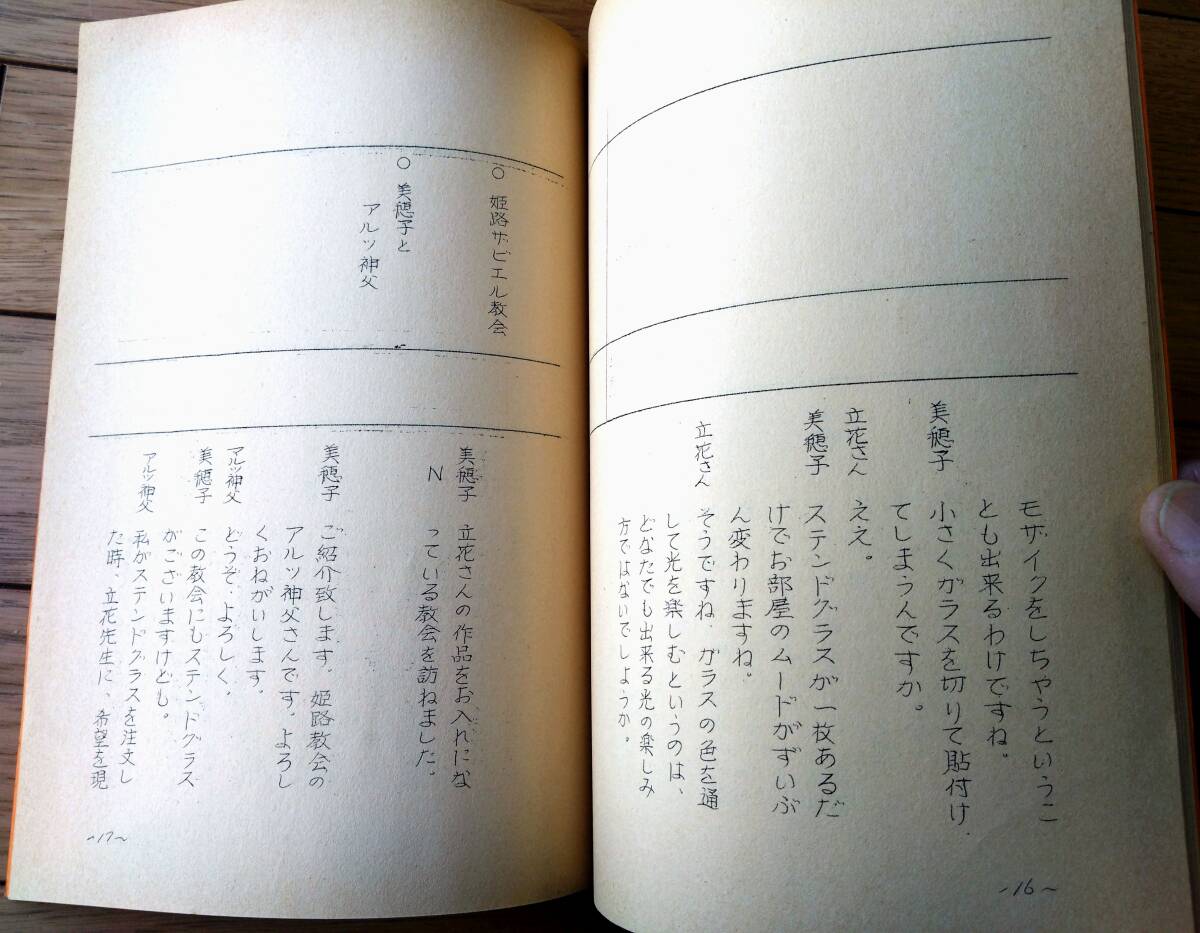 モザイクをしちゃうというこ
とも出来るわけですね。
美穂子
小さくガラスを切りて貼付け
てしまうんですか。
立花さん
ええ。
美穂子
ステンドグラスが一枚あるだ
けでお部屋のムードがずいぶ
ん変わりますね。
立花さん
そうですね、ガラスの色を通
して光を楽しむというのは、
どなたでも出来る光の楽しみ
方ではないでしようか。
~16~
○ 姫路ザビエル教会
○ 美穂子と
アルツ神父
美穂子
N
立花さんの作品をお入れにな
っている教会を訪ねました。
美穂子
ご紹介致します。姫路教会の
アルツ神父さんです。よろし
くおねがいします。
アルツ神父
どうぞ、よろしく。
美穂子
この教会にもステンドグラス
がございますけども。
アルツ神父
私がステンドグラスを注文し
た時、立花先生に、希望を現
~17~